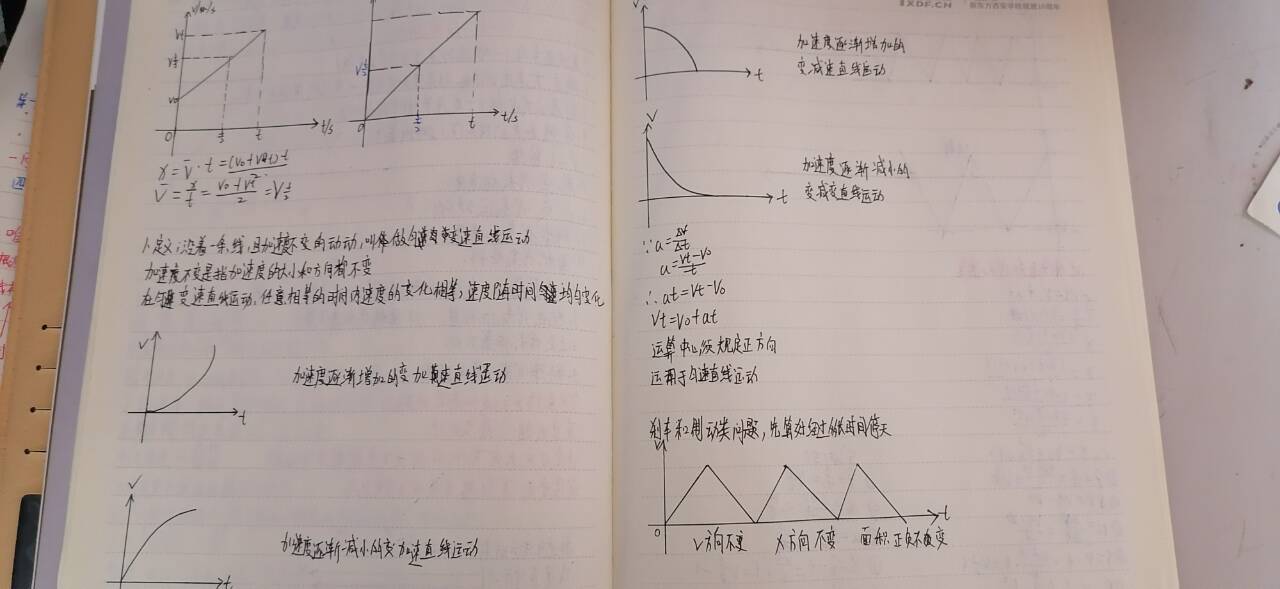 v/m/s
vt
v t/2
v0
0
t/2
t
t/s
v t/2
0
t/2
t
t/s
x = v̄·t = (v0+vt)·t
v̄ = x/t = (v0+vt)/2 = v t/2
1、定义：沿着一条线，且加速度不变的动动，叫做匀变速直线运动
加速度不变是指加速度的大小和方向都不变
在匀变速直线运动，任意相等的时间内速度的变化相等，速度随时间均匀变化
v
t
加速度逐渐增加的变加速直线运动
v
t
加速度逐渐减小的变加速直线运动
XDF.CN
v
t
加速度逐渐增加的
变减速直线运动
v
t
加速度逐渐减小的
变减变直线运动
∵a=Δv/Δt
a=(vt-v0)/t
∴at=vt-v0
vt=v0+at
运算中必须规定正方向
运用于匀速直线运动
刹车和制动类问题，先算
v
t
0
v方向不变 x方向不变 面积正负不变